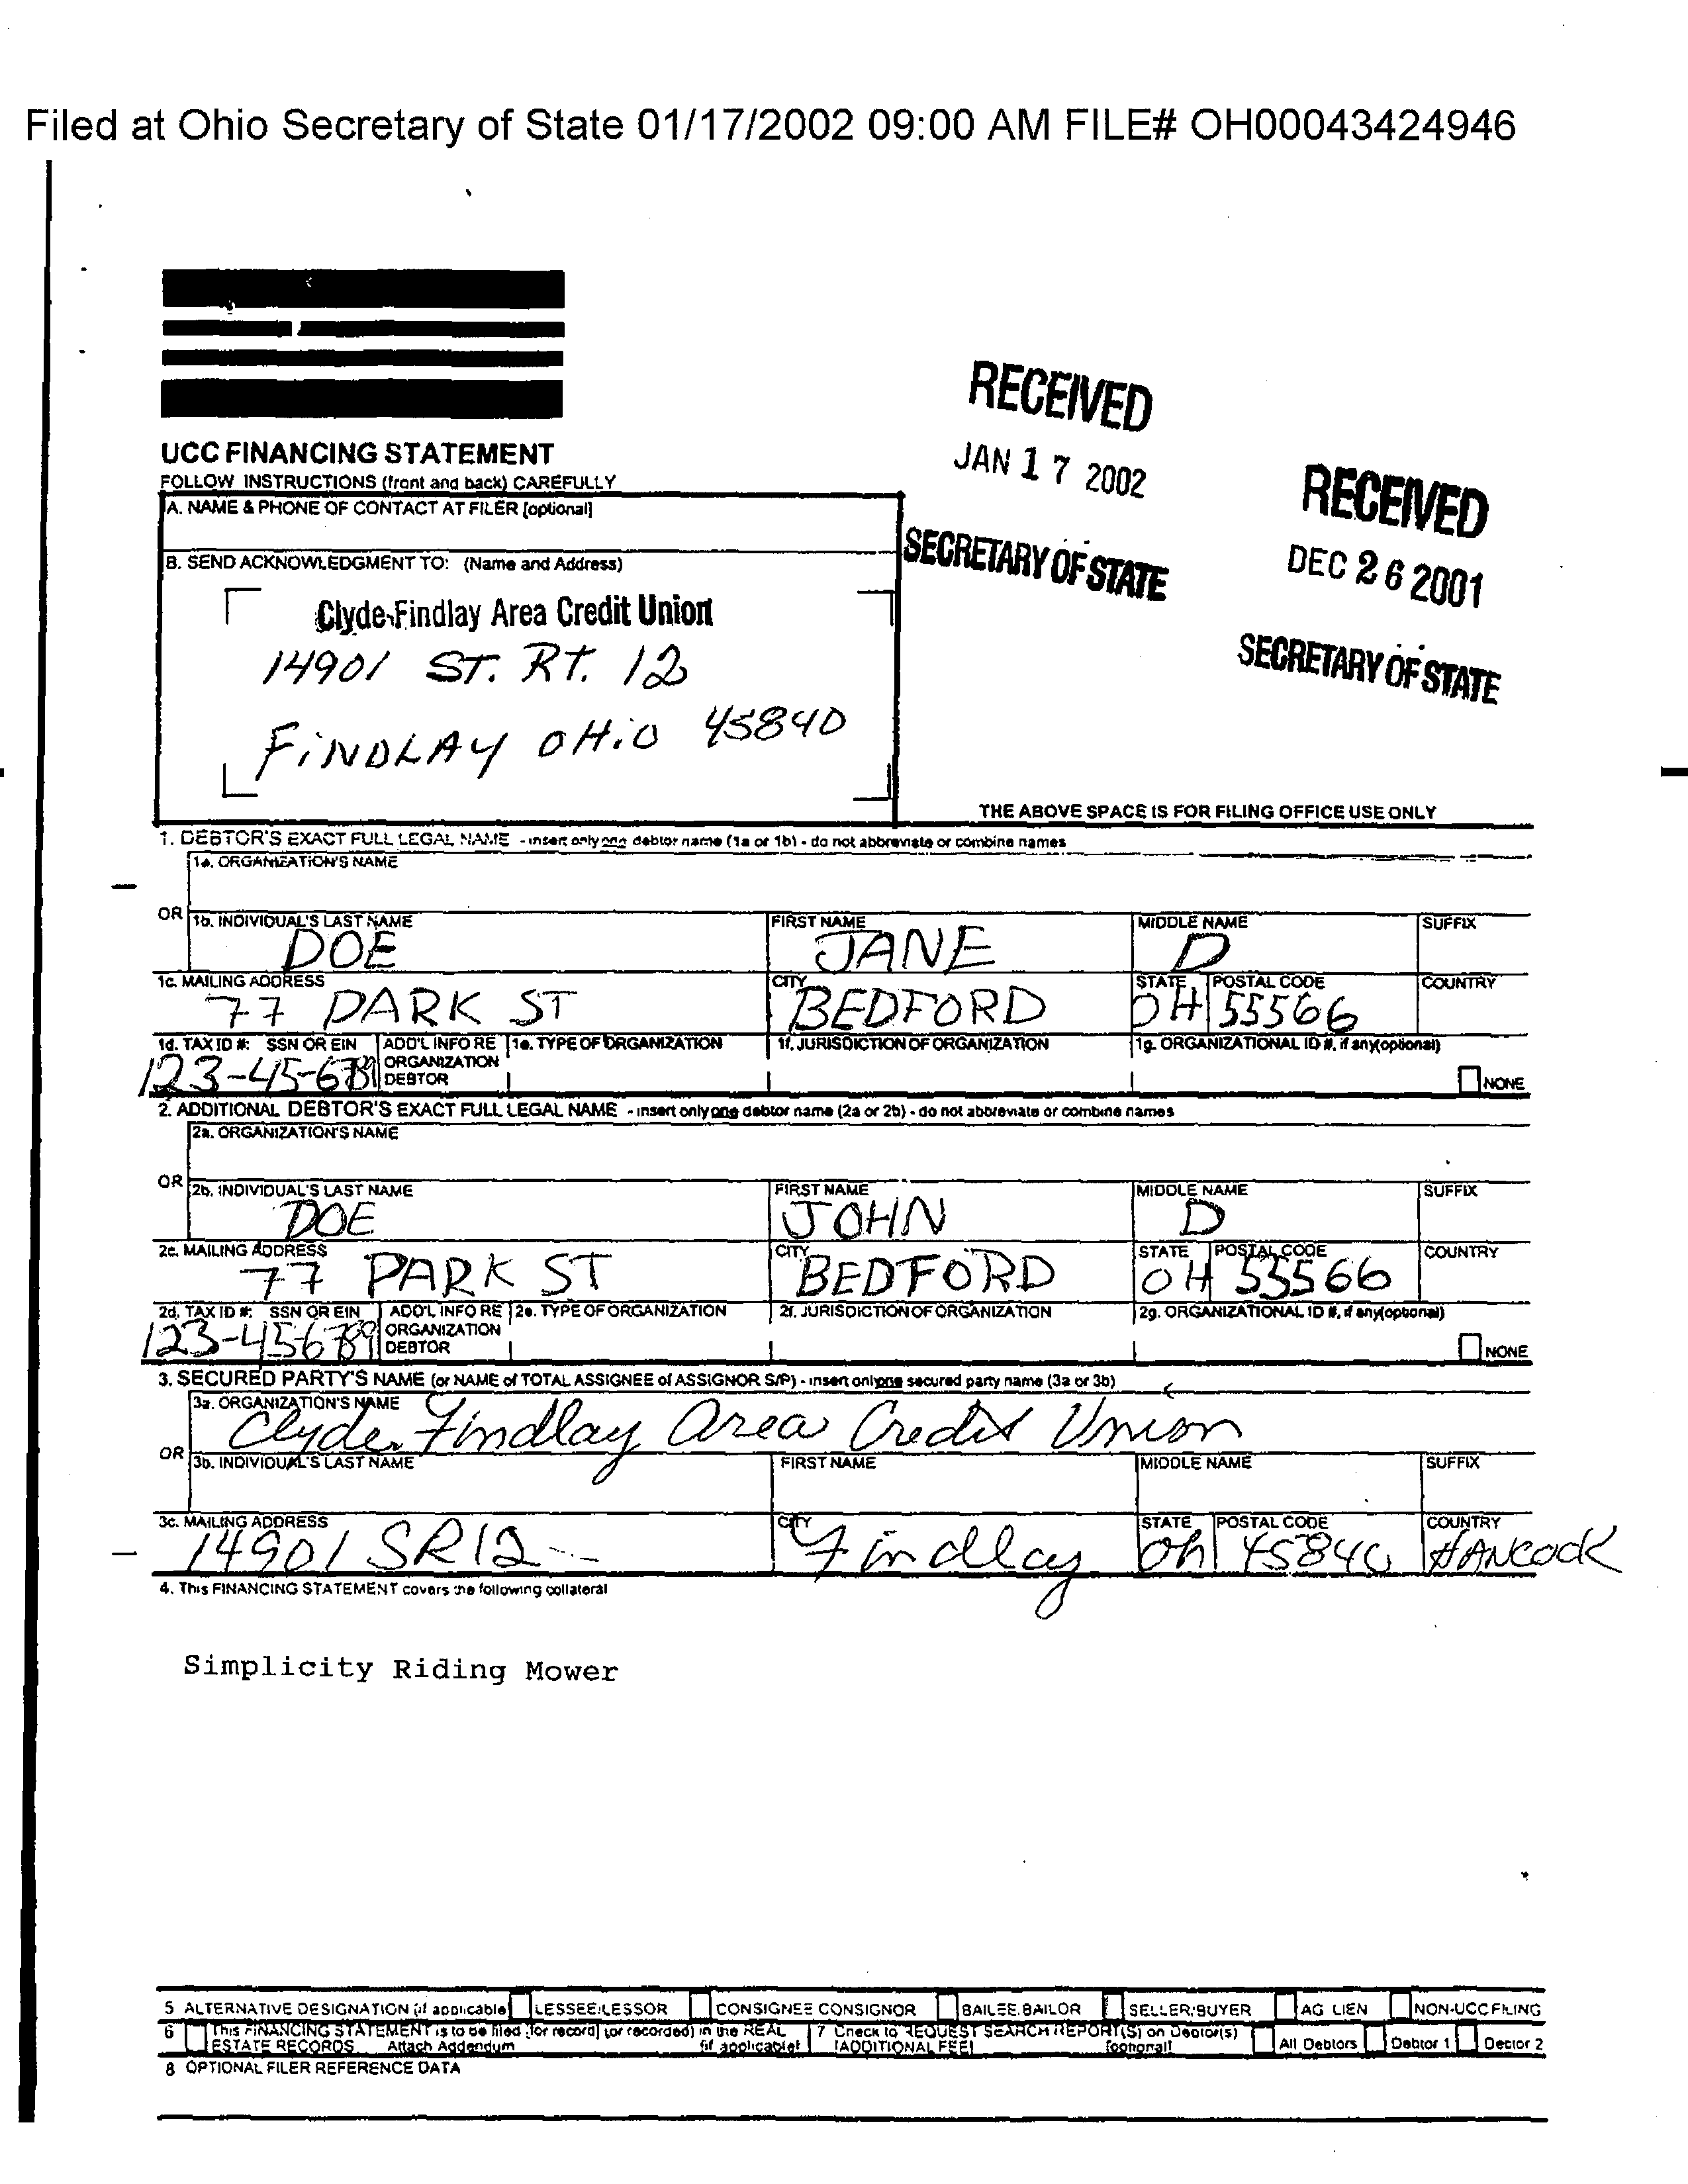 Filed at Ohio Secretary of State 01/17/2002 09:00 AM FILE# OH00043424946
RECEIVED
JAN 17 2002
SECRETARY OF STATE
RECEIVED
DEC 26 2001
SECRETARY OF STATE
UCC FINANCING STATEMENT
FOLLOW INSTRUCTIONS (front and back) CAREFULLY
A. NAME & PHONE OF CONTACT AT FILER [optional]
B. SEND ACKNOWLEDGMENT TO: (Name and Address)
Clyde-Findlay Area Credit Union
14901 ST. RT. 12
FiNDLAY OHiO 45840
THE ABOVE SPACE IS FOR FILING OFFICE USE ONLY
1. DEBTOR'S EXACT FULL LEGAL NAME - insert only one debtor name (1a or 1b) - do not abbreviate or combine names
1a. ORGANIZATION'S NAME
OR 1b. INDIVIDUAL'S LAST NAME FIRST NAME MIDDLE NAME SUFFIX
DOE JANE D
1c. MAILING ADDRESS CITY STATE POSTAL CODE COUNTRY
77 PARK ST BEDFORD OH 55566
1d. TAX ID #: SSN OR EIN ADD'L INFO RE ORGANIZATION DEBTOR 1e. TYPE OF ORGANIZATION 1f. JURISDICTION OF ORGANIZATION 1g. ORGANIZATIONAL ID #, if any(optional)
123-45-6789 NONE
2. ADDITIONAL DEBTOR'S EXACT FULL LEGAL NAME - insert only one debtor name (2a or 2b) - do not abbreviate or combine names
2a. ORGANIZATION'S NAME
OR 2b. INDIVIDUAL'S LAST NAME FIRST NAME MIDDLE NAME SUFFIX
DOE JOHN D
2c. MAILING ADDRESS CITY STATE POSTAL CODE COUNTRY
77 PARK ST BEDFORD OH 55566
2d. TAX ID #: SSN OR EIN ADD'L INFO RE ORGANIZATION DEBTOR 2e. TYPE OF ORGANIZATION 2f. JURISDICTION OF ORGANIZATION 2g. ORGANIZATIONAL ID #, if any(optional)
123-456789 NONE
3. SECURED PARTY'S NAME (or NAME of TOTAL ASSIGNEE of ASSIGNOR S/P) - insert only one secured party name (3a or 3b)
3a. ORGANIZATION'S NAME
Clyde-Findlay Area Credit Union
OR 3b. INDIVIDUAL'S LAST NAME FIRST NAME MIDDLE NAME SUFFIX
3c. MAILING ADDRESS CITY STATE POSTAL CODE COUNTRY
14901 SR12 Findlay Oh 45840 HANCOCK
4. This FINANCING STATEMENT covers the following collateral
Simplicity Riding Mower
5 ALTERNATIVE DESIGNATION (if applicable) LESSEE/LESSOR CONSIGNEE CONSIGNOR BAILEE/BAILOR SELLER/BUYER AG LIEN NON-UCC FILING
6 This FINANCING STATEMENT is to be filed [for record] (or recorded) in the REAL ESTATE RECORDS Attach Addendum [if applicable] 7 Check to REQUEST SEARCH REPORT(S) on Debtor(s) [ADDITIONAL FEE] [optional] All Debtors Debtor 1 Debtor 2
8 OPTIONAL FILER REFERENCE DATA